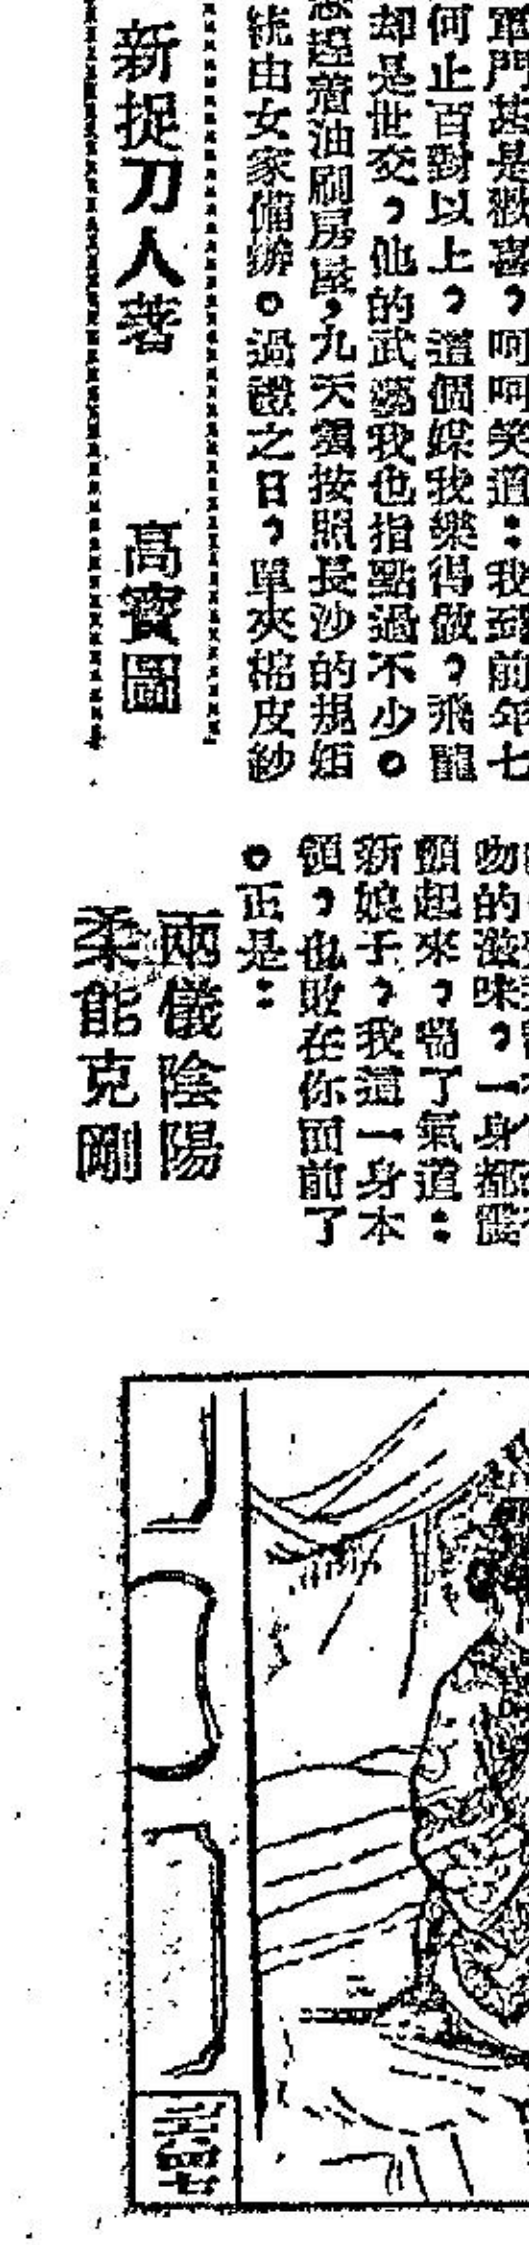 軍門甚是歡喜，呵呵笑道：我到前年七
何止百對以上，這個媒我樂得做，飛龍
却是世交，他的武藝我也指點過不少。
趕着油刷房屋，九天須按照長沙的規矩
統由女家備辦。過禮之日，單夾棉皮紗
新捉刀人著　高寶圖
吻的滋味，一身都
顫起來，喘了氣道：
新娘子，我這一身本
領，也敗在你面前了
。正是：
兩儀陰陽
柔能克剛